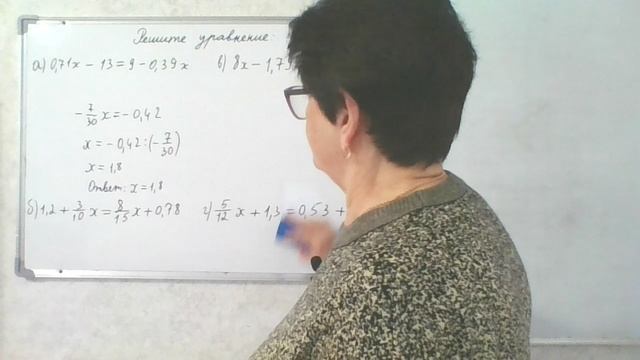 Решите уравнение:
а) 0,71x − 13 = 9 − 0,39x в) 8x − 1,73
−7/30 x = −0,42
x = −0,42 : (−7/30)
x = 1,8
Ответ: x = 1,8
б) 1,2 + 3/10 x = 8/15 x + 0,78 г) 5/12 x + 1,3 = 0,53 +